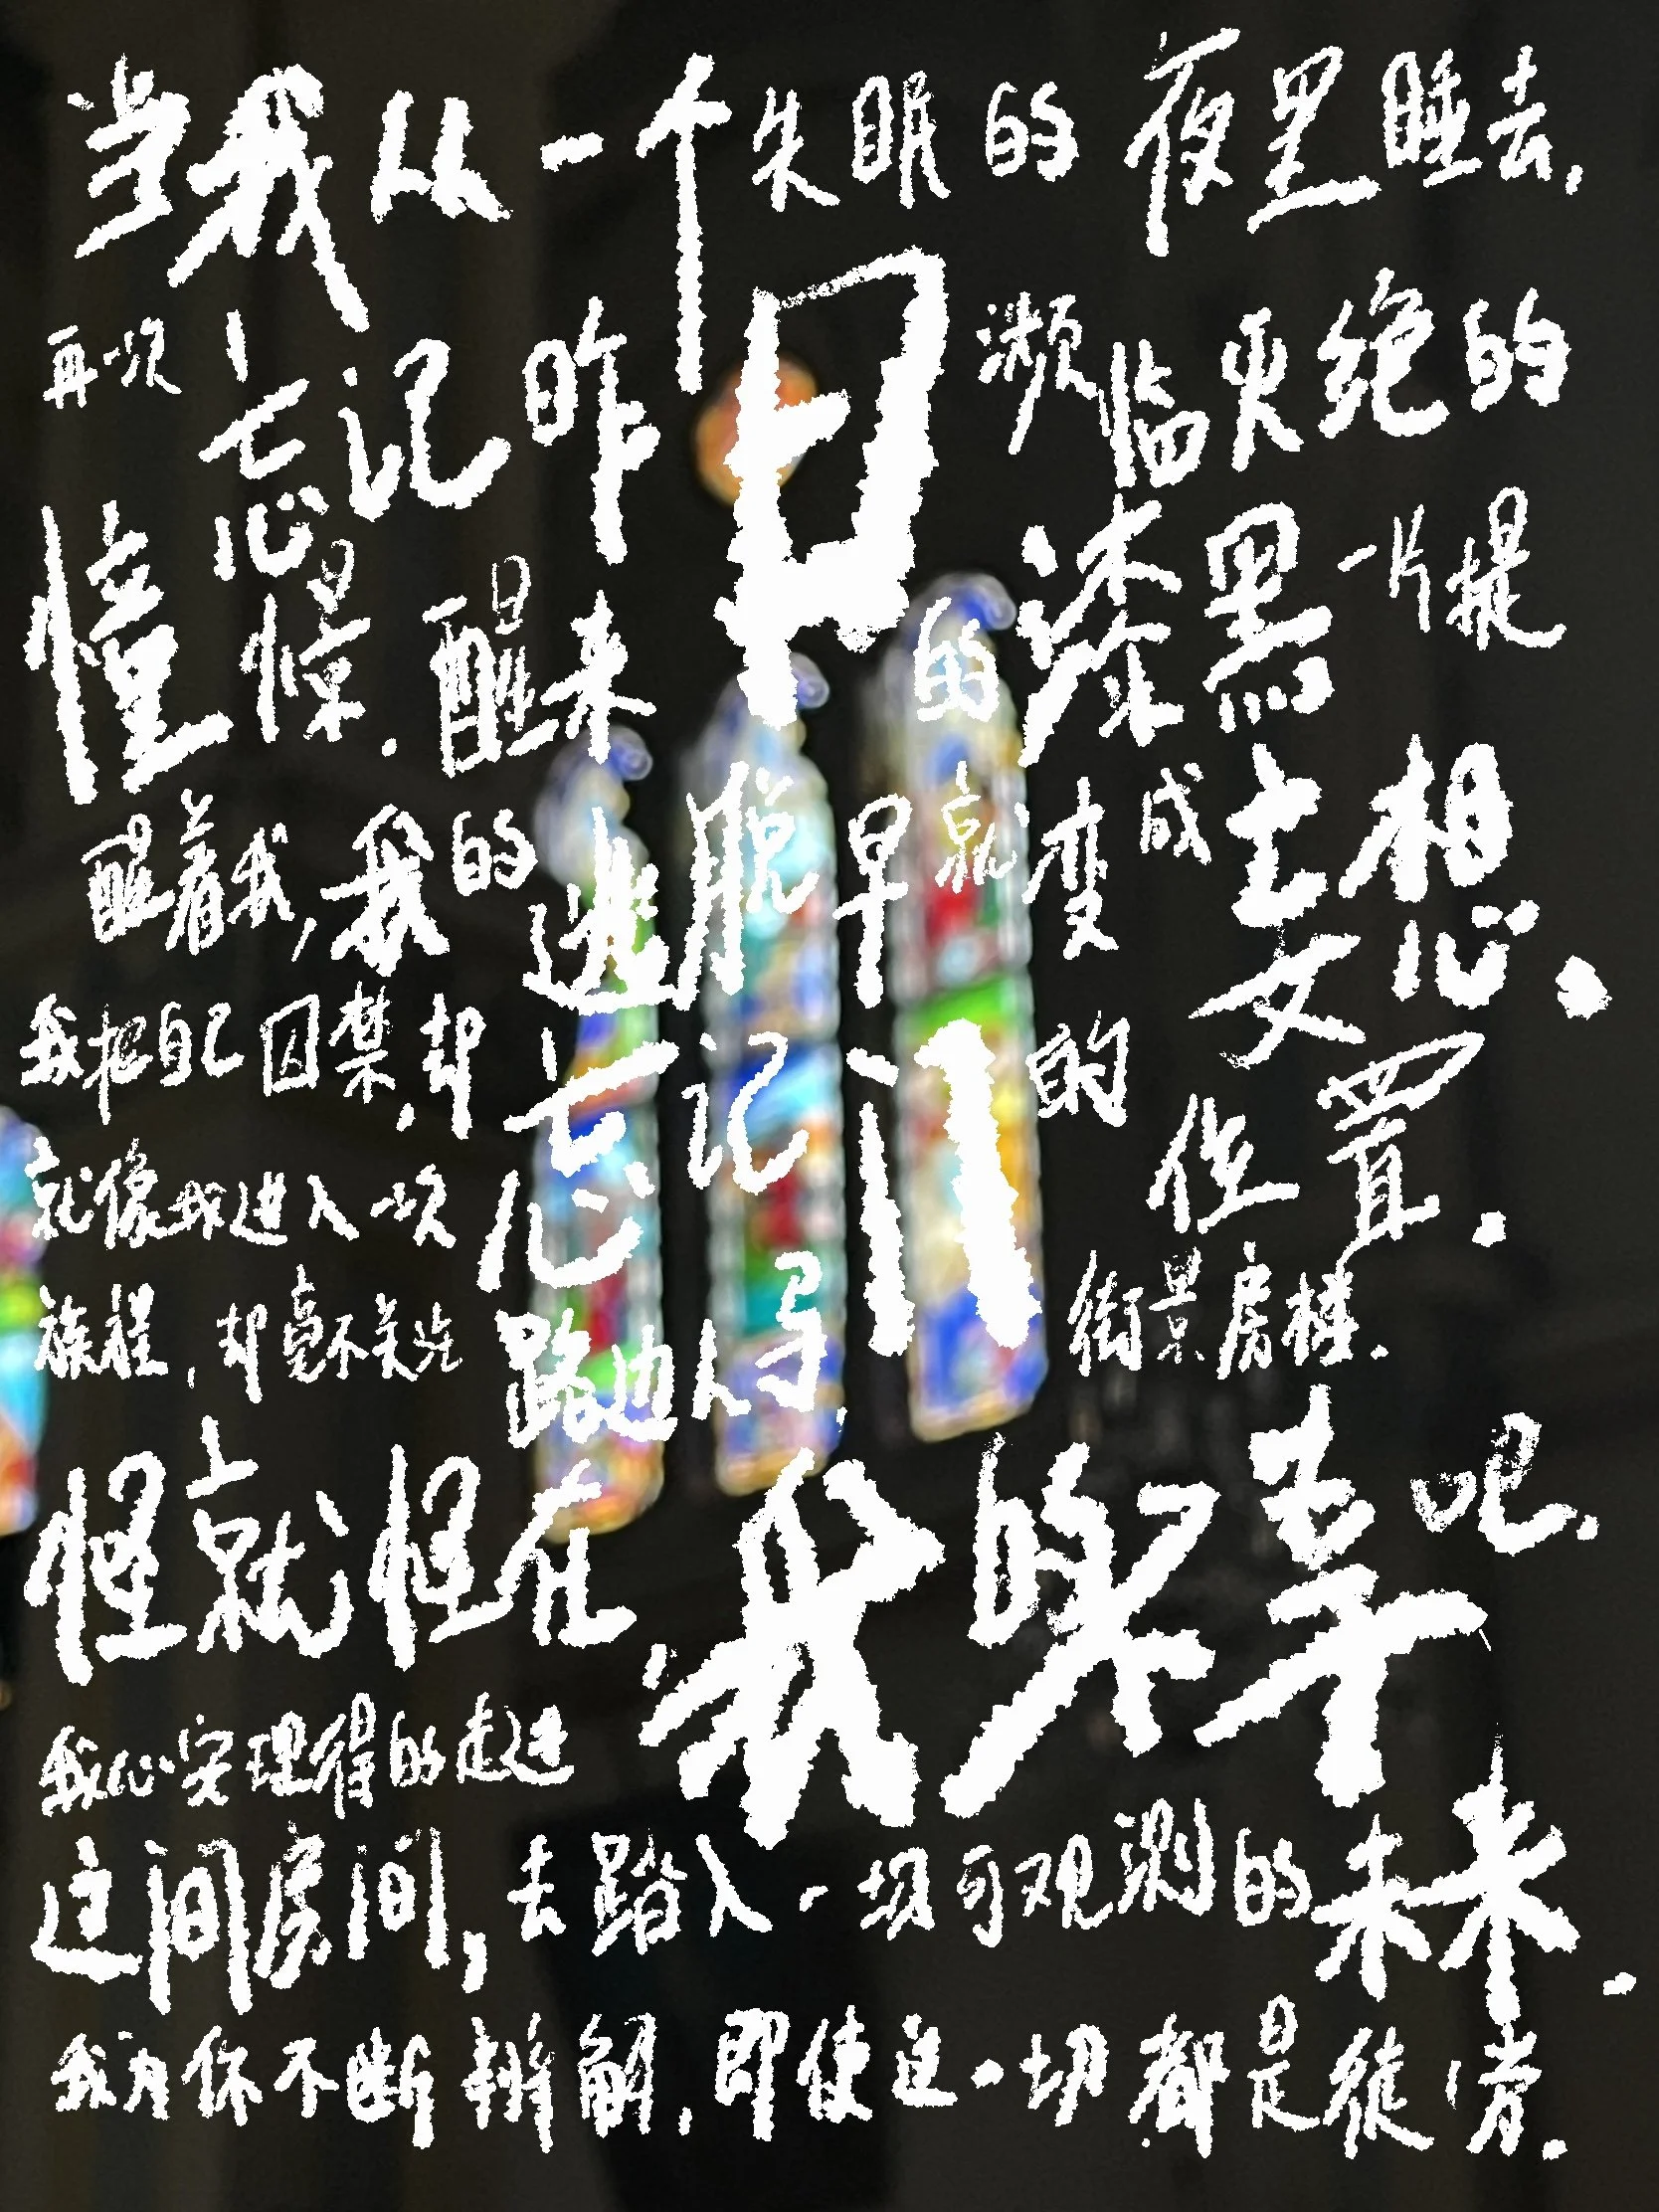 当我从一个失眠的夜里睡去,
再次忘记昨日濒临灭绝的
憧憬.醒来的漆黑一片提
醒着我,我的逃脱早就变成妄想.
我把自己囚禁,却忘记门的位置.
就像我进入一次
旅程,却毫不关注路边人,街景房楼.
怪就怪在,我的不幸吧.
我心安理得的走进
这间房间,去踏入一切可观测的未来.
我为你不断辩解,即使这一切都是徒劳.